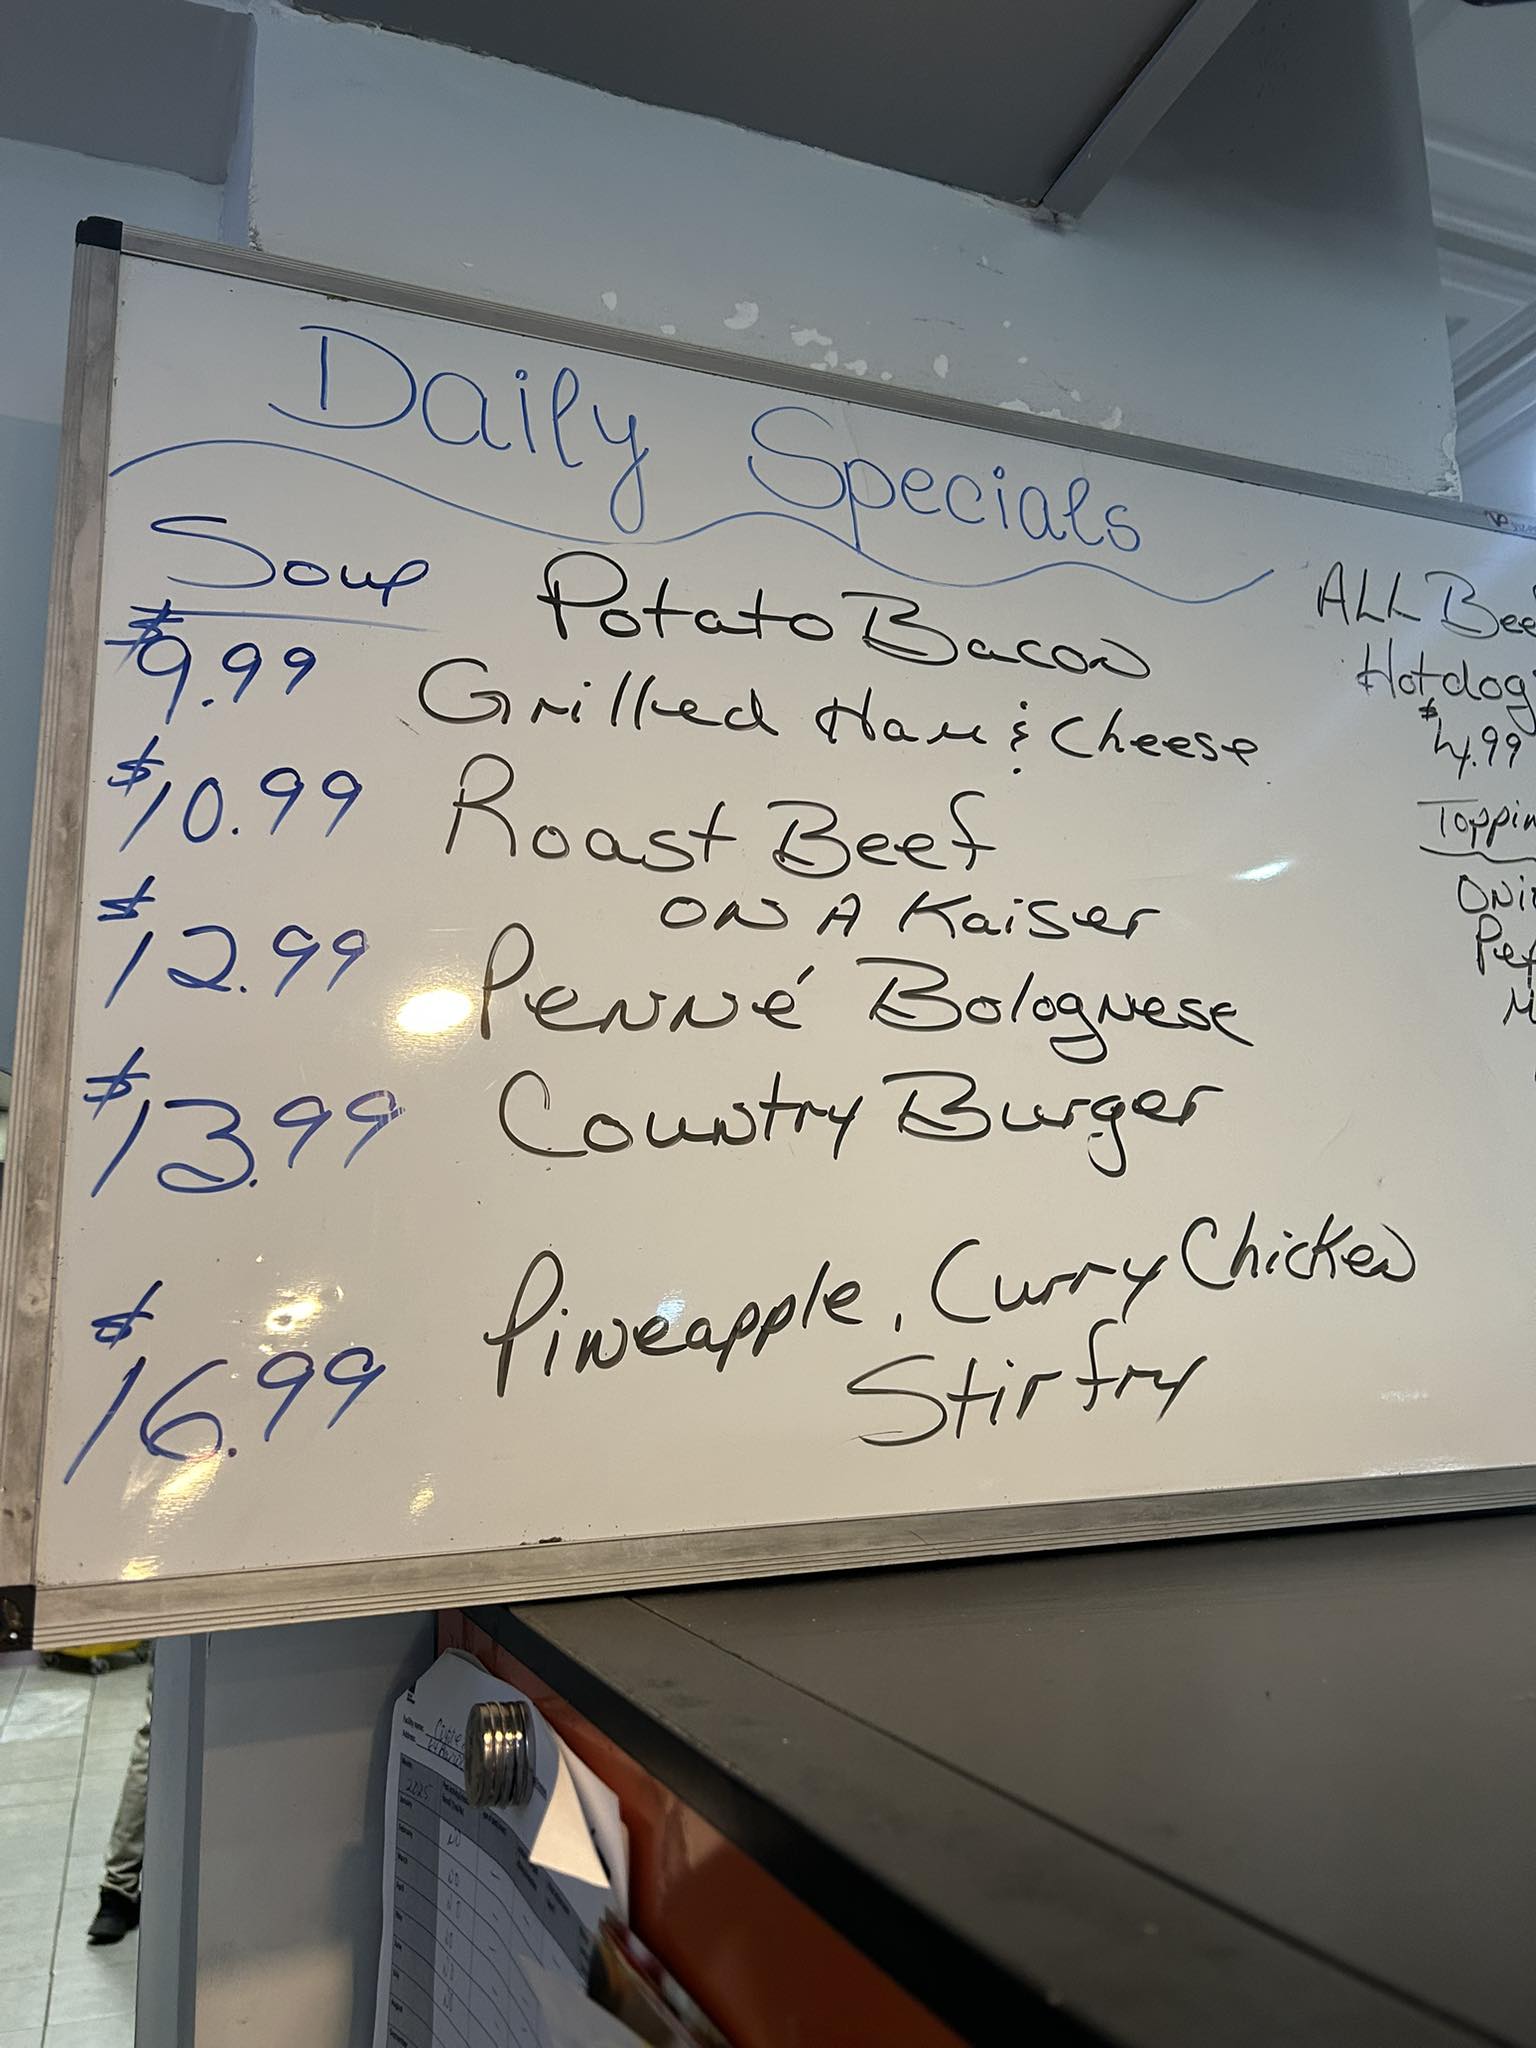 Daily Specials
Soup Potato Bacon
$9.99 Grilled Ham & Cheese
$10.99 Roast Beef
ON A Kaiser
$12.99 Penné Bolognese
$13.99 Country Burger
$16.99 Pineapple, Curry Chicken
Stirfry
ALL Bee
Hotdog
$4.99
Toppin
Oni
2025